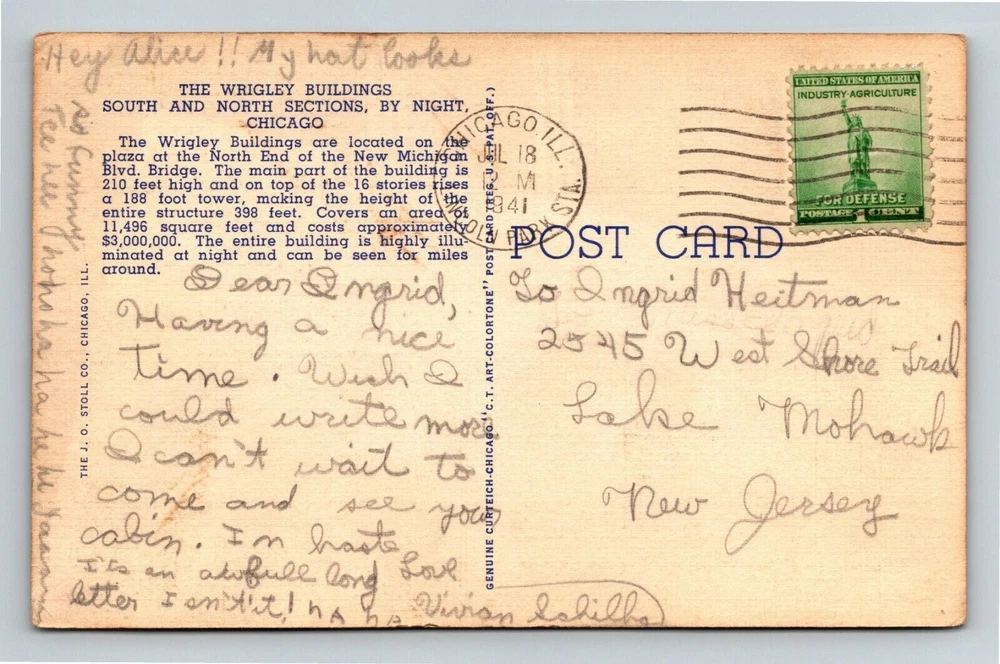 Hey Alice !! My hat looks
so funny
Tee hee hohoho ha ha he he
THE WRIGLEY BUILDINGS
SOUTH AND NORTH SECTIONS, BY NIGHT,
CHICAGO
The Wrigley Buildings are located on the
plaza at the North End of the New Michigan
Blvd. Bridge. The main part of the building is
210 feet high and on top of the 16 stories rises
a 188 foot tower, making the height of the
entire structure 398 feet. Covers an area of
11,496 square feet and costs approximately
$3,000,000. The entire building is highly illu-
minated at night and can be seen for miles
around.
THE J. O. STOLL CO., CHICAGO, ILL.
Dear Ingrid,
Having a nice
time. Wish I
could write more
I can't wait to
come and see your
cabin. In haste
Love
Vivian
It's an awfull long
letter Isn't it! ha ha
GENUINE CURTEICH-CHICAGO "C.T. ART-COLORTONE" POST CARD (REG. U.S. PAT. OFF.)
CHICAGO, ILL.
JUL 18
2 M
1941
LINCOLN PARK STA.
UNITED STATES OF AMERICA
INDUSTRY·AGRICULTURE
FOR DEFENSE
POSTAGE 1 CENT
POST CARD
To Ingrid Heitman
2545 West Shore Trail
Lake Mohawk
New Jersey